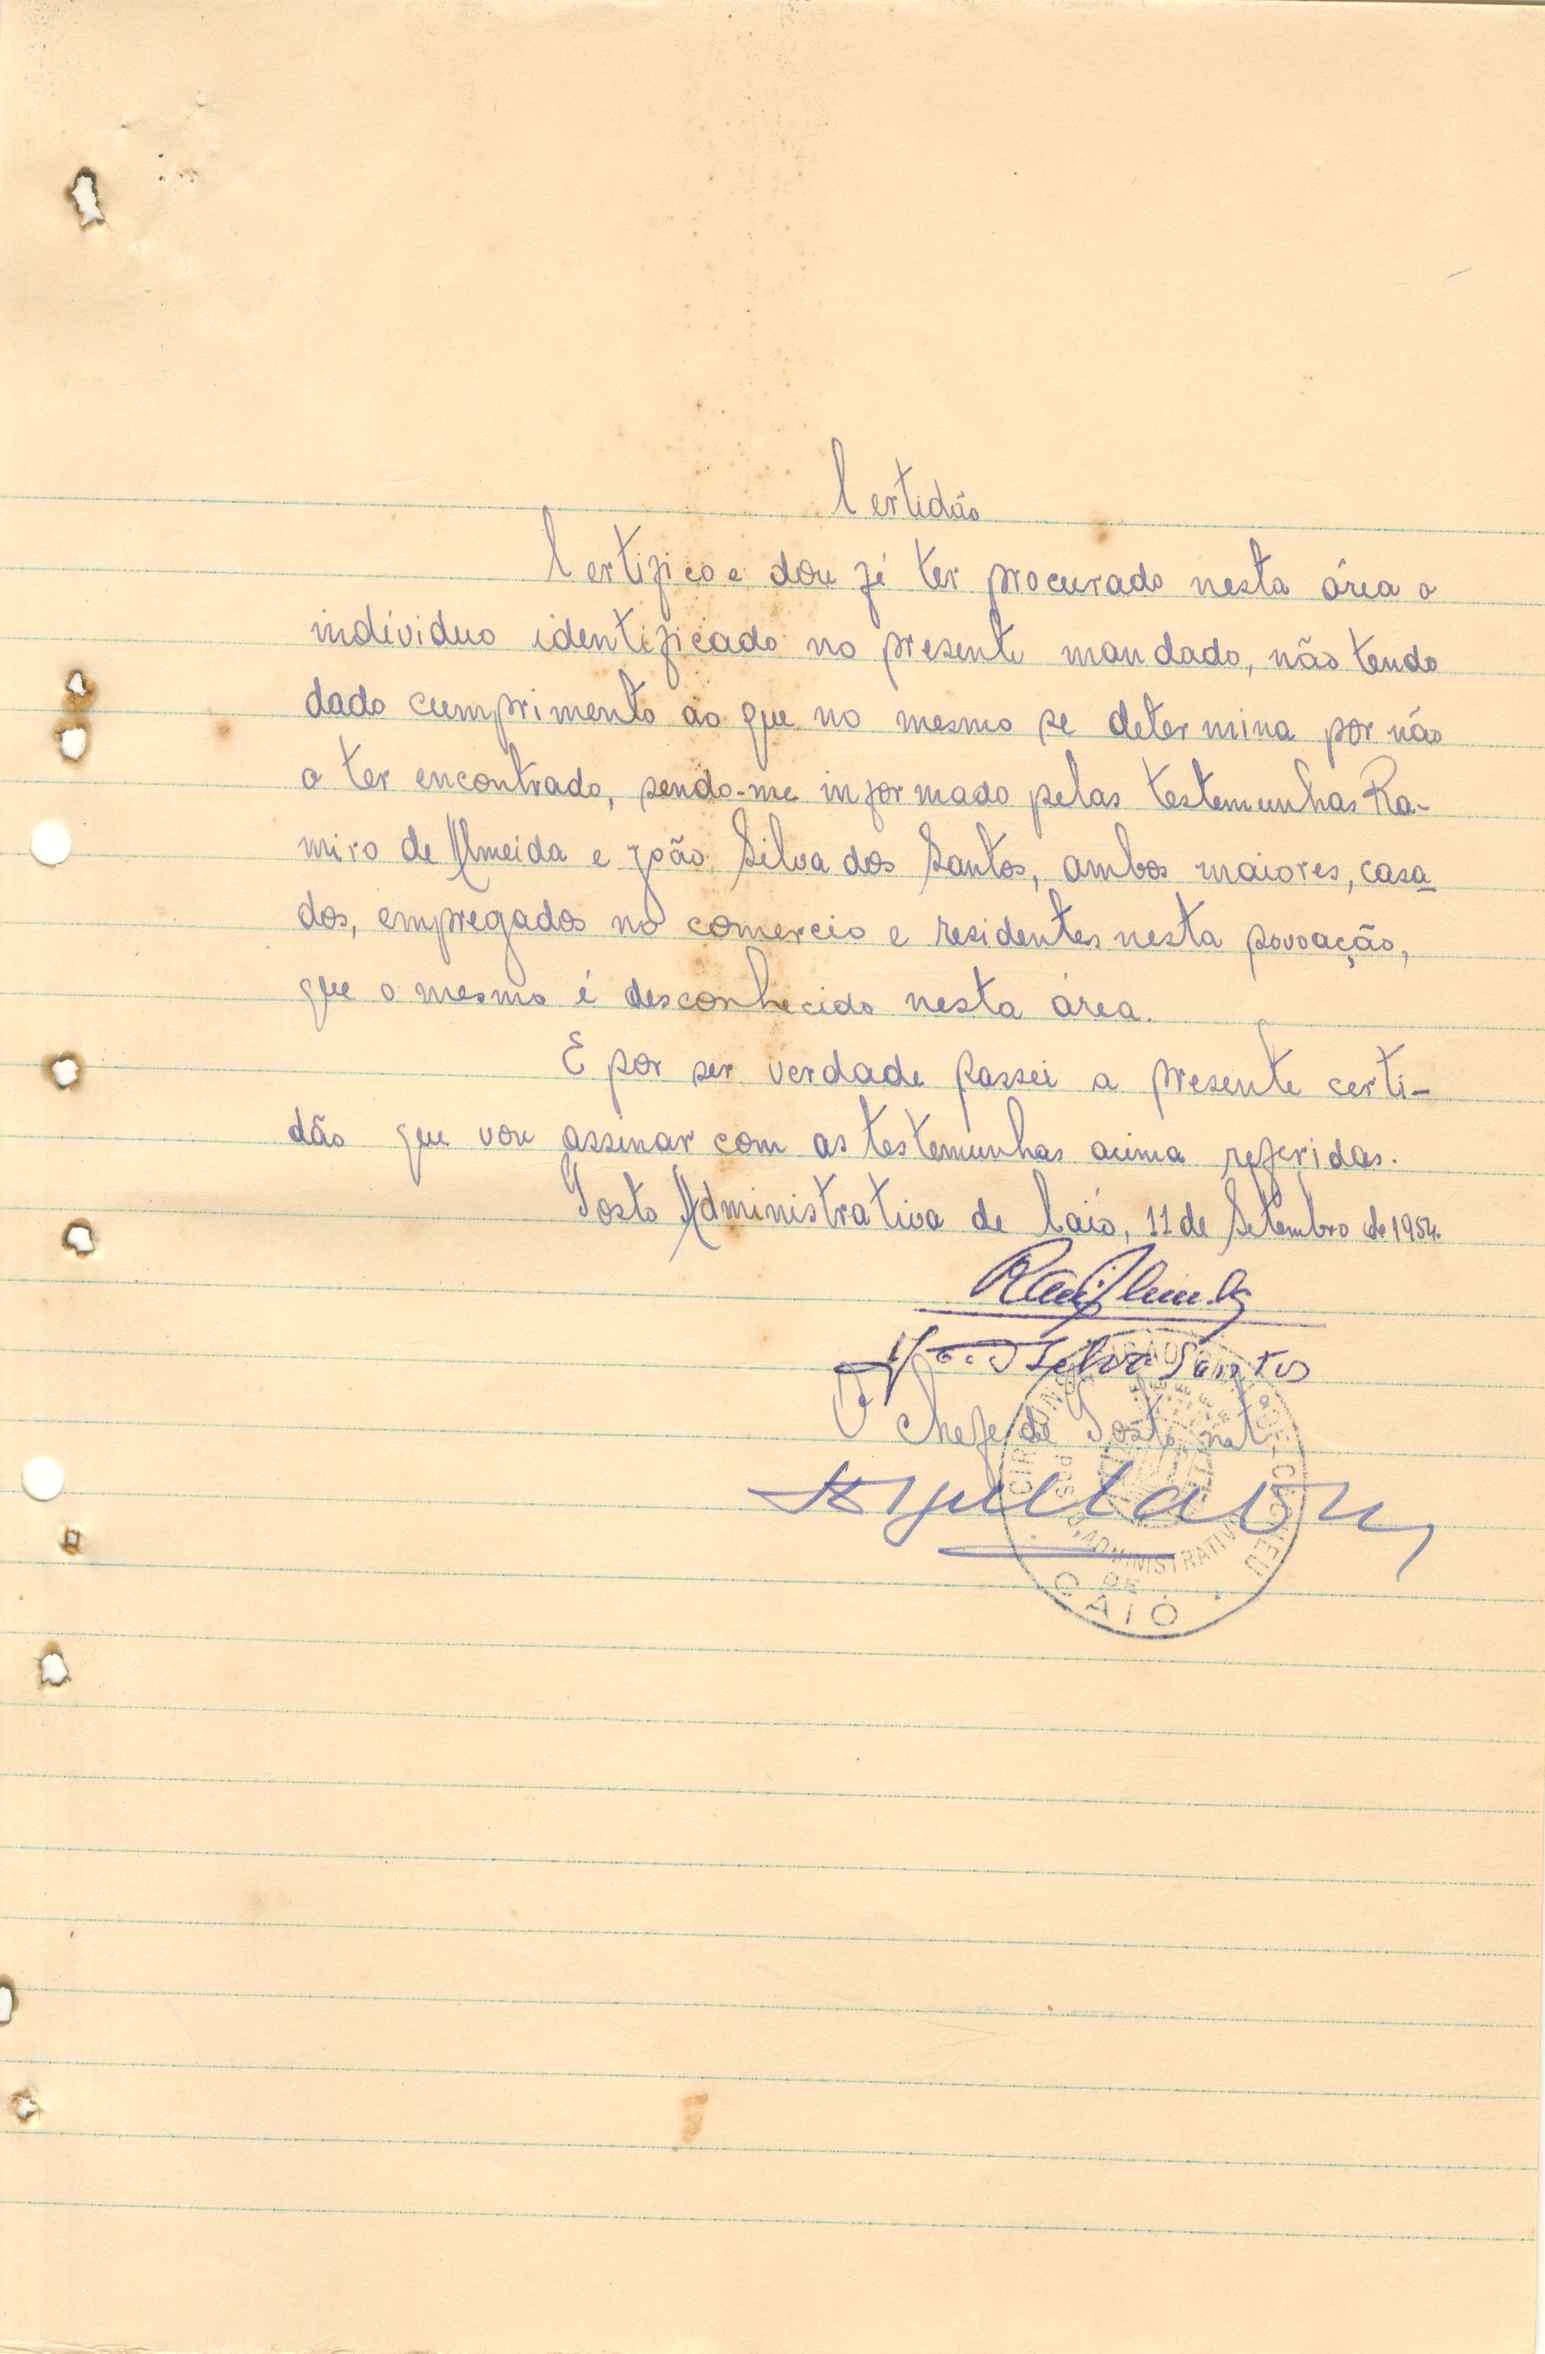 Certidão
Certifico e dou fé ter procurado nesta área o
indíviduo identificado no presente mandado, não tendo
dado cumprimento ao que no mesmo se determina por não
o ter encontrado, sendo-me informado pelas testemunhas Ra-
miro de Almeida e João Silva dos Santos, ambos maiores, casa-
dos, empregados no comercio e residentes nesta povoação,
que o mesmo é desconhecido nesta área.
E por ser verdade passei a presente certi-
dão que vou assinar com as testemunhas acima referidas.
Posto Administrativo de Caió, 11 de Setembro de 1954.
João Silva Santos
O Chefe de Posto,
ADMINISTRATIVO
DE
CAIÓ